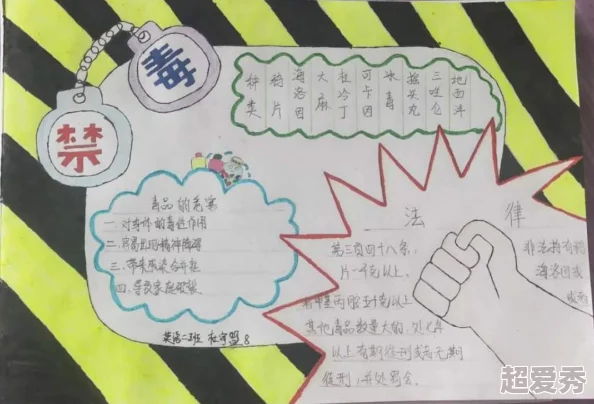 毒
禁
种类
鸦片
海洛因
大麻
杜冷丁
可卡因
冰毒
摇头丸
三唑仑
地西泮
毒品的危害
一.对身体的毒性作用
二.容易出现精神障碍
三.带来感染合并症
四.导致家庭破裂
英语二班
8
法律
第三百四十八条,
非法持有鸦
片一千克以上,
海洛因或
甲基丙胺五十克以上
其他毒品数量大的,处七年
以上有期徒刑或者无期
徒刑,并处罚金.
超爱秀